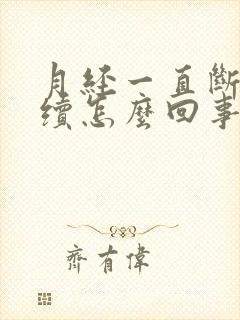 月经一直斷
續怎麼回事
齊有偉